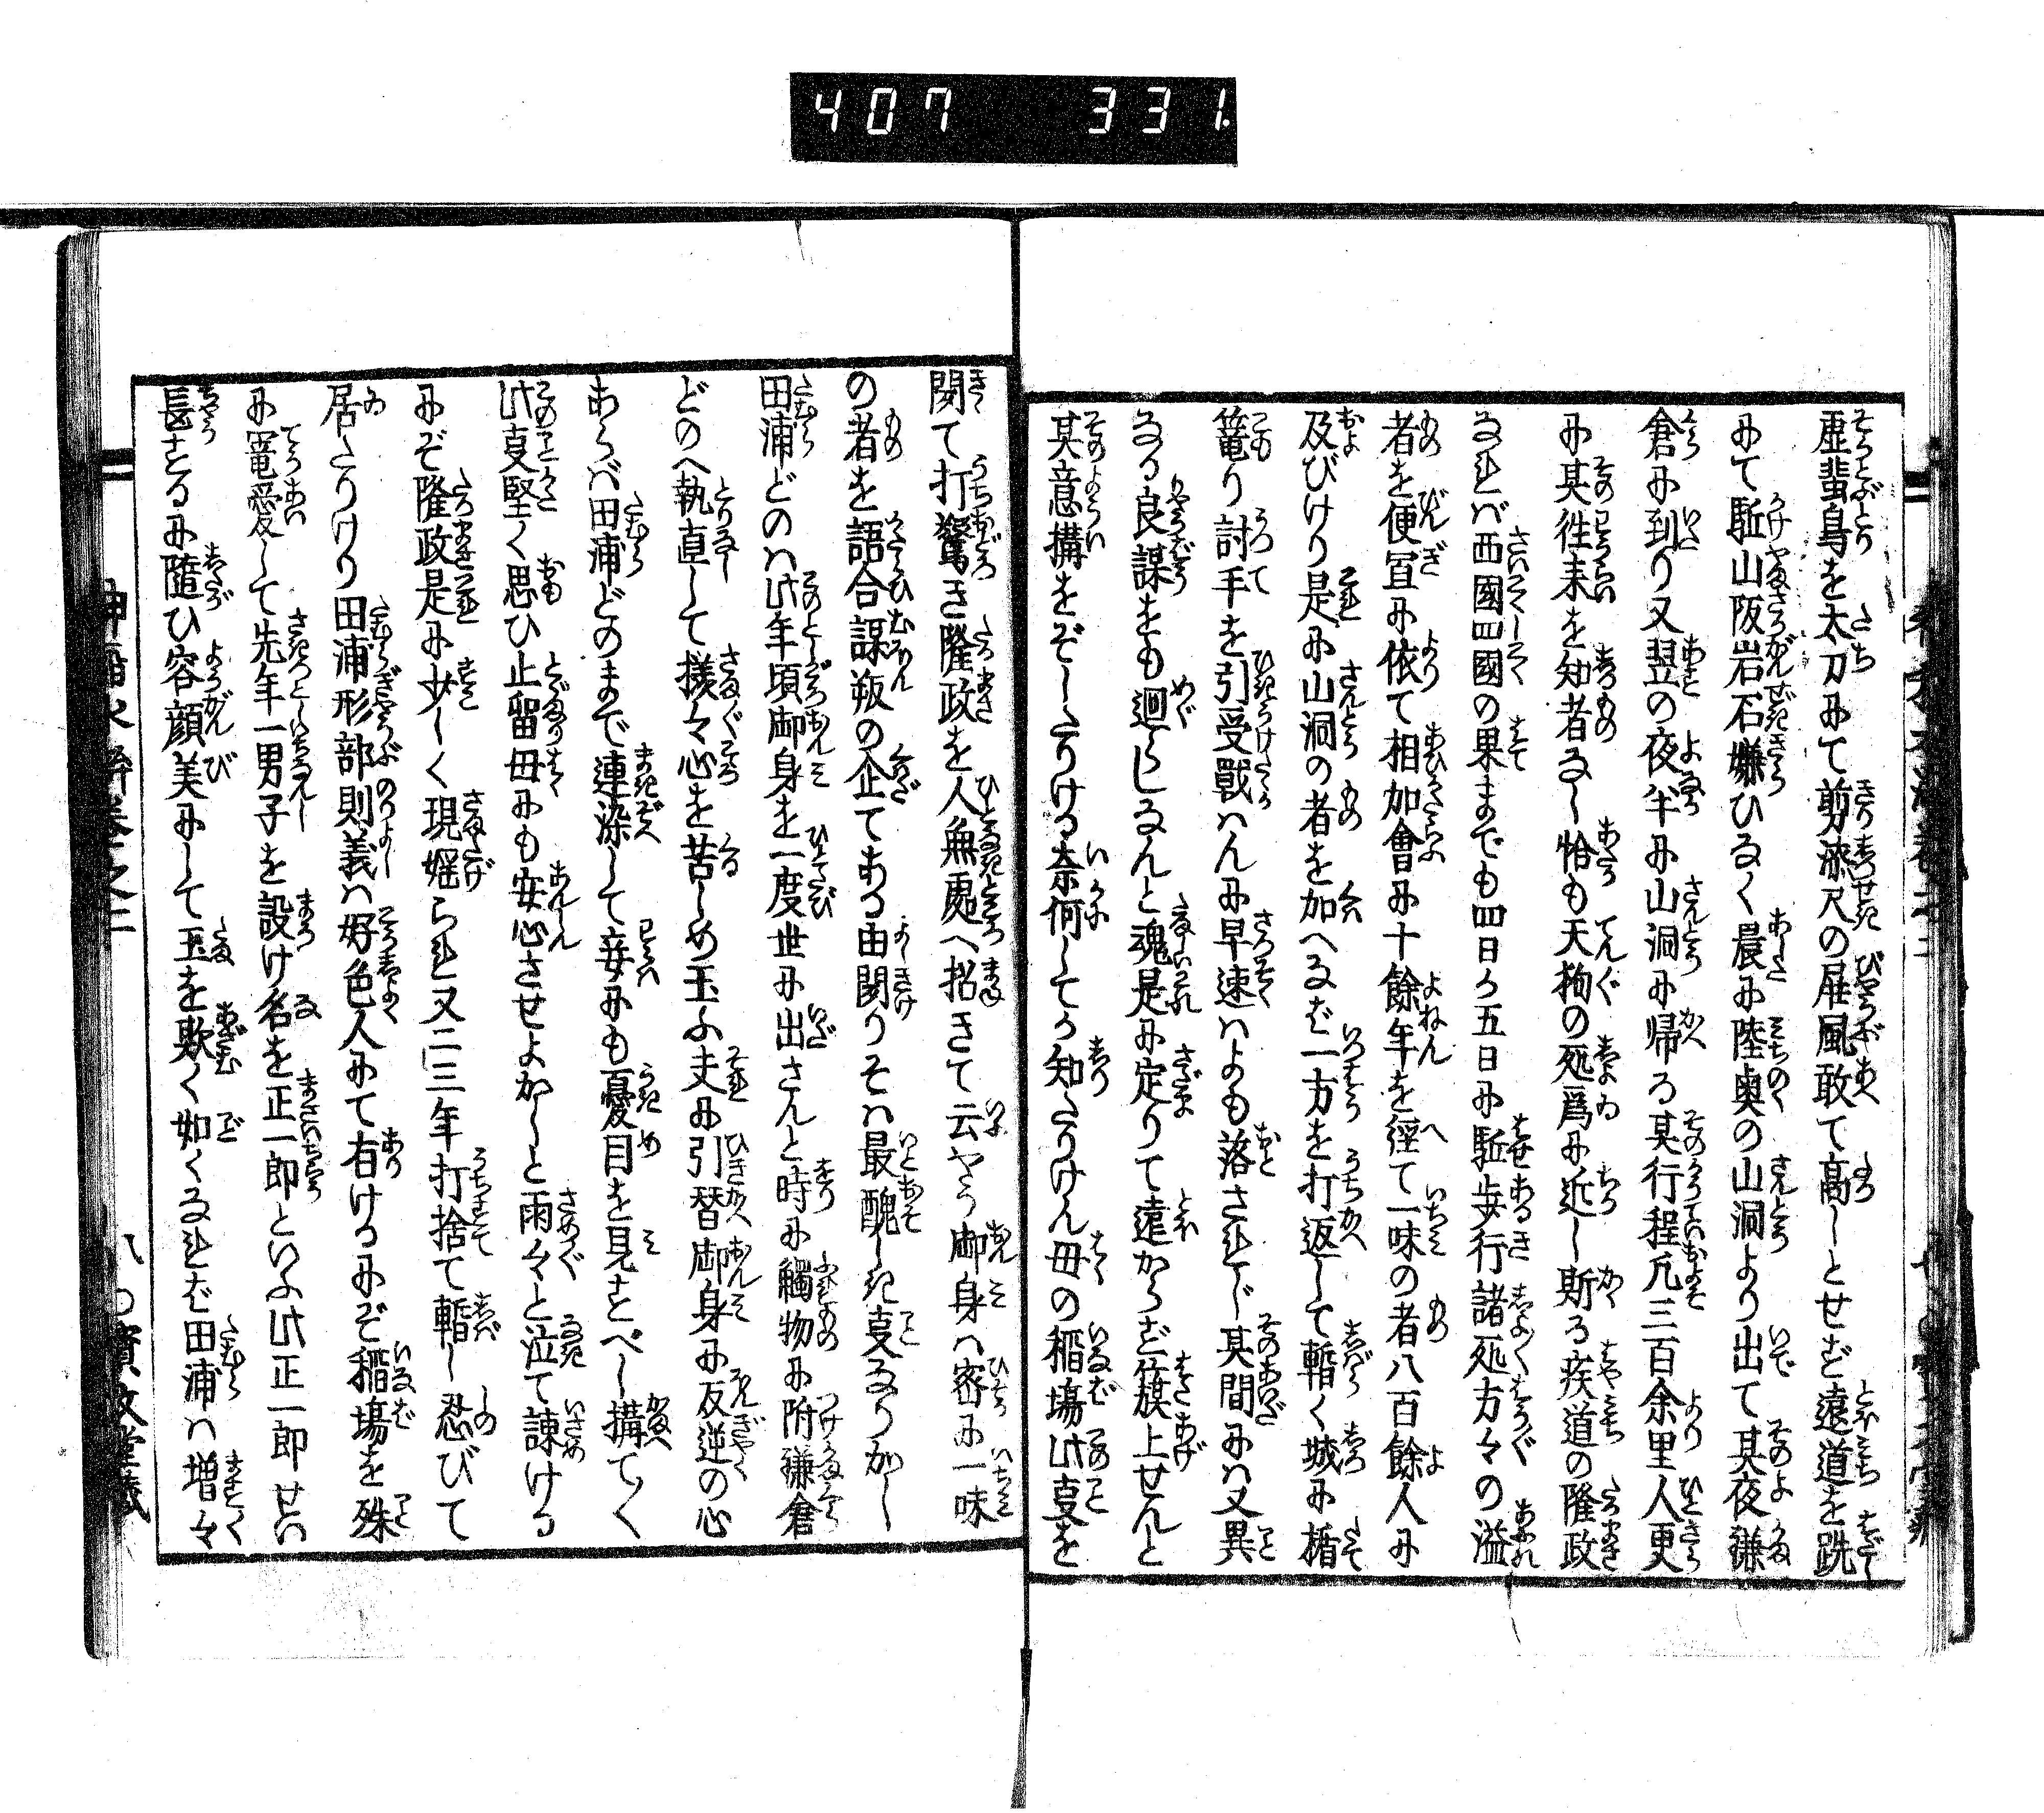 407 331.
虚蜚鳥を太刀にて剪漆尺の屏風敢て高しとせず遠道を跣
にて駈山阪岩石嫌ひなく晨に陸奥の山洞より出て其夜鎌
倉に到り又翌の夜半に山洞に帰る其行程凡三百余里人更
に其徃来を知者なし恰も天狗の所爲に近し斯る疾道の隆政
なれバ西國四國の果までも四日か五日に駈歩行諸所方々の溢
者を便宜に依て相加會に十餘年を經て一味の者八百餘人に
及びけり是に山洞の者を加へなば一方を打返して暫く城に楯
篭り討手を引受戰はんに早速はよも落されじ其間にハ又異
なる良謀をも廻らしなんと魂是に定りて遠からず籏上せんと
其意搆をぞしたりける奈何してか知たりけん母の稲塲此㕝を
聞て打驚き隆政を人無處へ招きて云やう御身ハ密に一味
の者を語合謀叛の企てある由聞りそハ最醜しき㕝なりかし
田浦どのハ此年頃御身を一度世に出さんと時に觸物に附鎌倉
どのへ執直して様々心を苦しめ玉ふ夫に引替御身に反逆の心
あらバ田浦どのまで連染して妾にも憂目を見すべし搆てく
此㕝堅く思ひ止畱母にも安心させよかしと雨々と泣て諫ける
にぞ隆政是に少しく現婬られ又二三年打捨て暫し忍びて
居たりけり田浦形部則義ハ好色人にて右けるにぞ稲塲を殊
に寵愛して先年一男子を設け名を正一郎といふ此正一郎せい
長するに隨ひ容顔美にして玉を欺く如くなれば田浦ハ増々